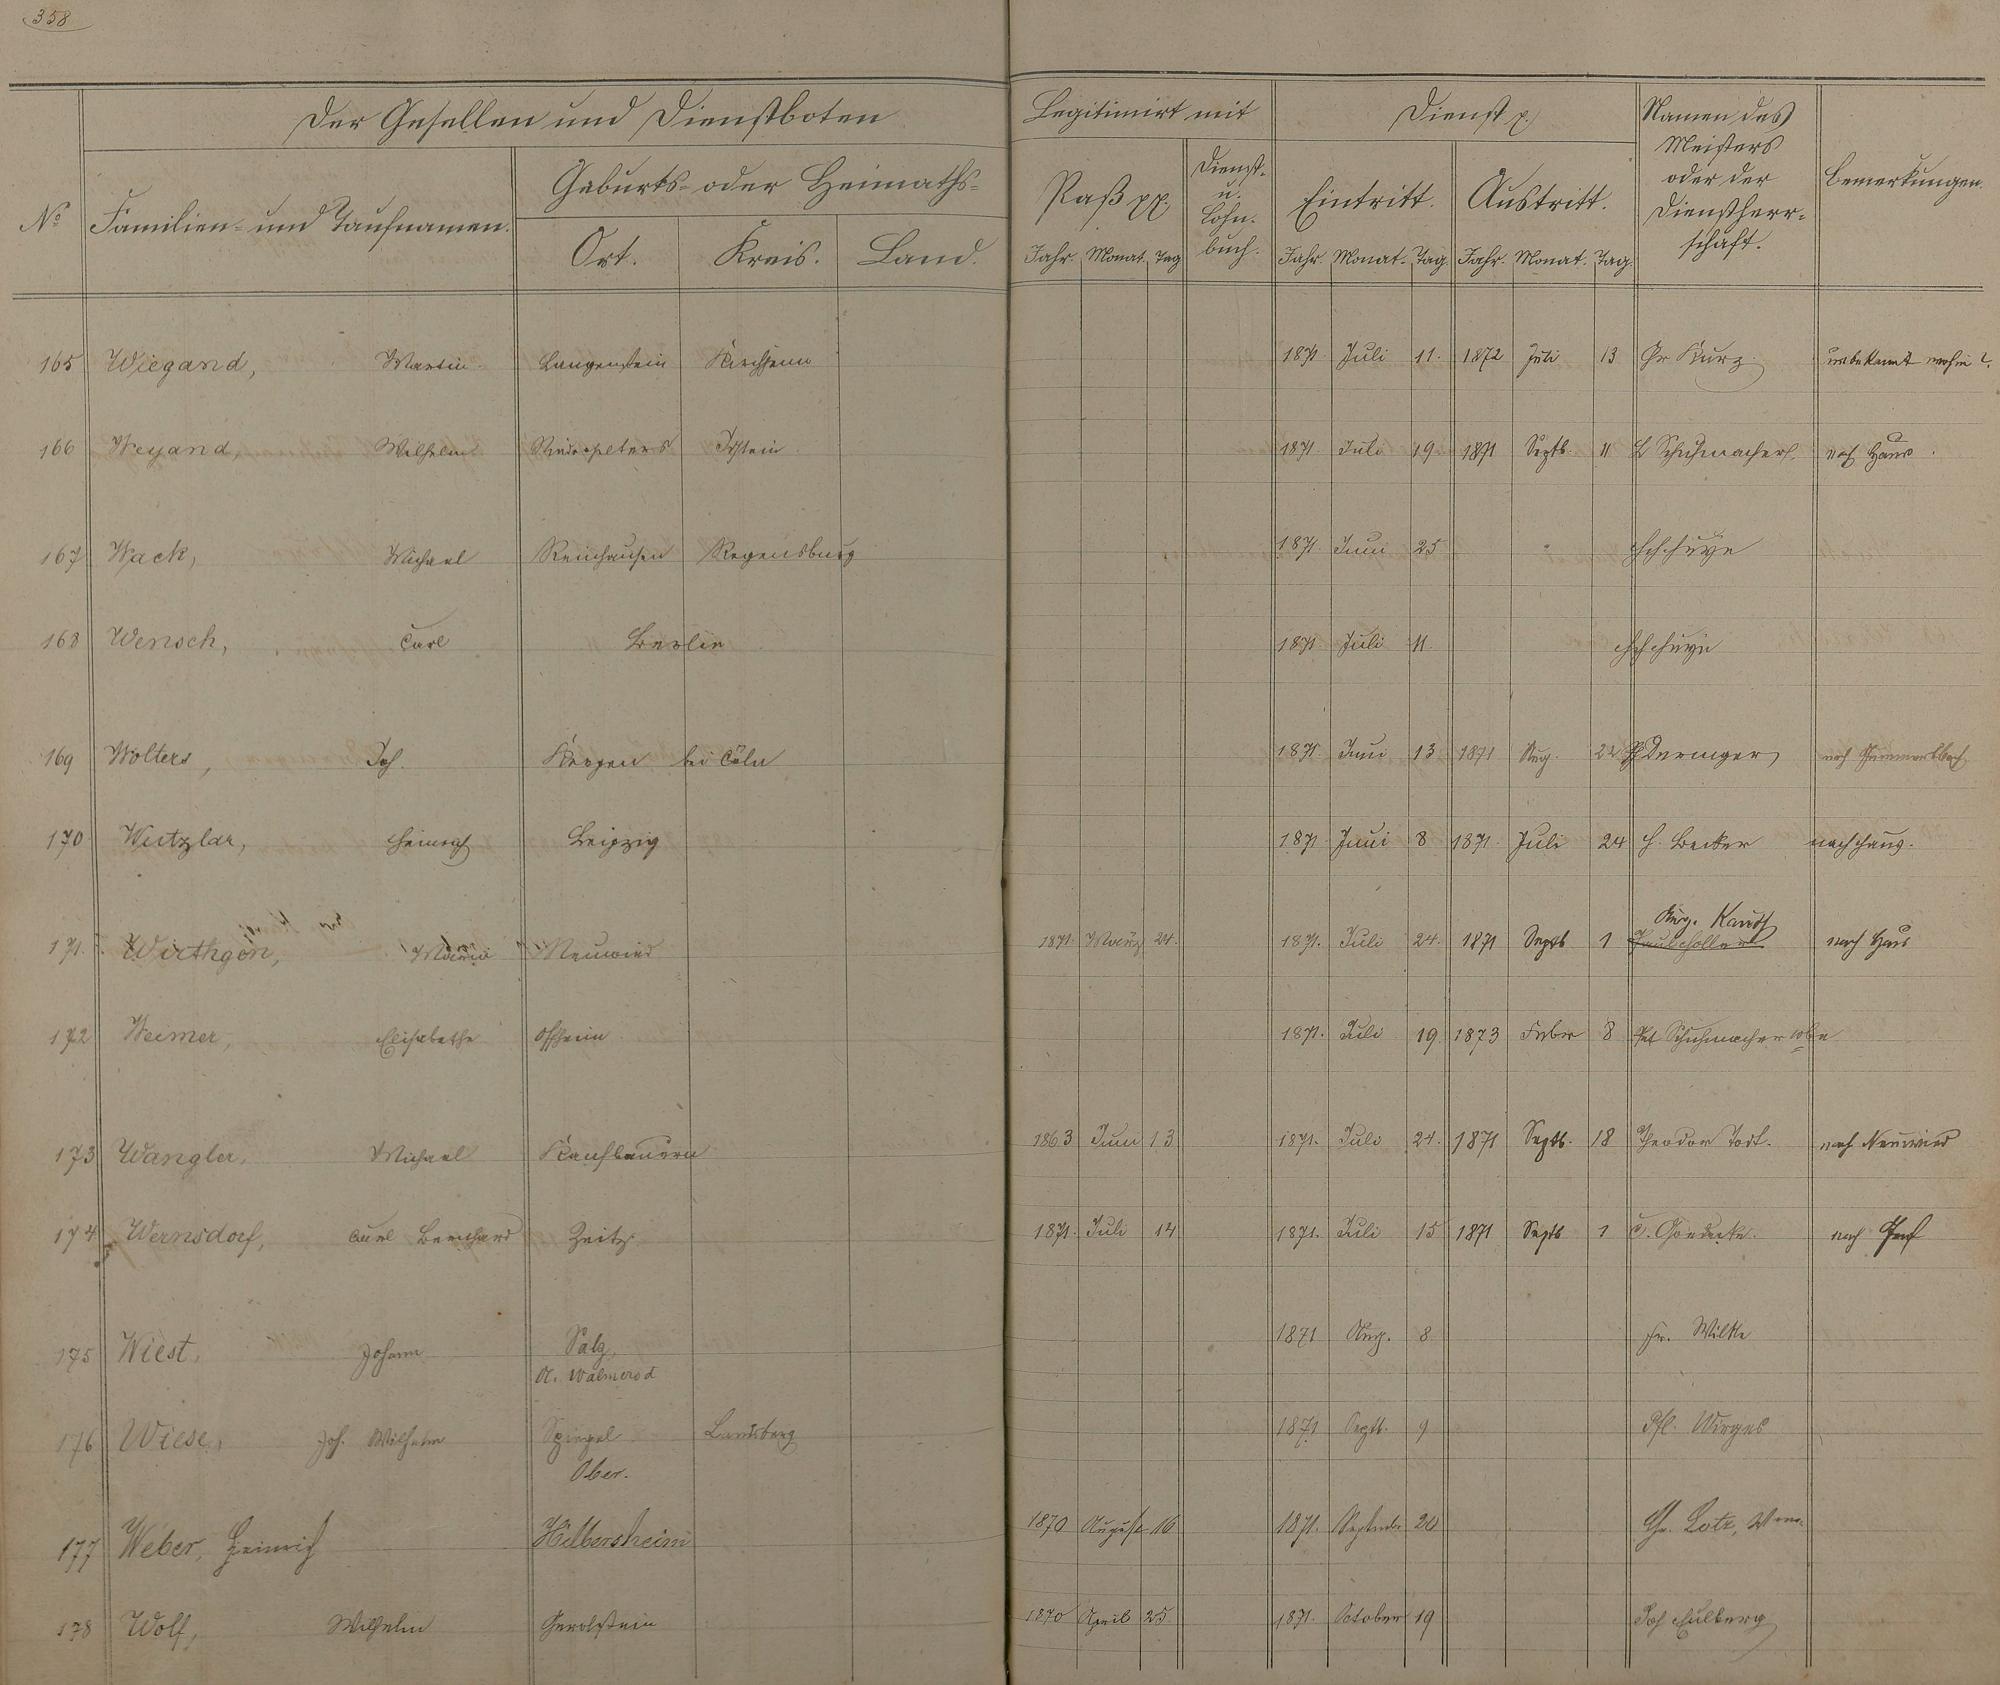 358
Der Gesellen und Dienstboten
Legitimirt mit
Dienst p.
Namen des
Meisters
oder der
Dienstherr-
schaft.
Bemerkungen.
No
Familien- und Taufnamen.
Geburts- oder Heimaths-
Ort. Kreis. Land.
Paß pp.
Dienst-
u.
Lohn-
buch.
Eintritt. Austritt.
Jahr. Monat. Tag Jahr. Monat. Tag. Jahr. Monat. Tag.
165 Wiegand, Martin Langenstein Kirchhain 1871. Juli 11. 1872 Juli 13 Gr Kurz. unbekannt wohin?
166 Weyand, Wilhelm Niederselters Idstein 1871. Juli 19 1871 Septb. 11 L Schuhmacher. nach Haus.
167 Wack, Michael Reinhausen Regensburg 1871. Juni 25
168 Wensch, Carl Berlin 1871. Juli 11.
169 Wolters, Joh. Kerpen bei Cöln 1871. Juni 13 1871 Aug. 22 nach
170 Wetzlar, Heinrich Leipzig 1871 Juni 8 1871. Juli 24 H. Becker nach Haus.
171. Wirthgen, Maria Neuwied 1871. März 24. 1871. Juli 24. 1871 Septb 1 nach Haus
172 Weimer, Elisabethe Offheim 1871. Juli 19 1873 Febr 8 Pet Schuhmacher Wbe
173 Wangler, Michael Kaufbeuern 1863 Juni 13 1871. Juli 24. 1871 Septb. 18 Theodor Todt. nach Neuwied
174 Wernsdorf, Carl Bernhard Zeitz 1871. Juli 14 1871. Juli 15 1871 Septb 1 C. Goedecke. nach
175 Wiest, Johann Salz, 1871 Aug. 8 Fr. Wilke
A. Walmerod
176 Wiese, Joh. Wilhelm Spiegel Landsberg 1871 Septb. 9 Phl. Wirges
Ober.
177 Weber, Heinrich Hilbersheim 1870 August 16 1871. Septembr 20 Chr. Lotz,
178 Wolf, Wilhelm Gerolstein 1870 April 25 1871. October 19 Jos Eulberg